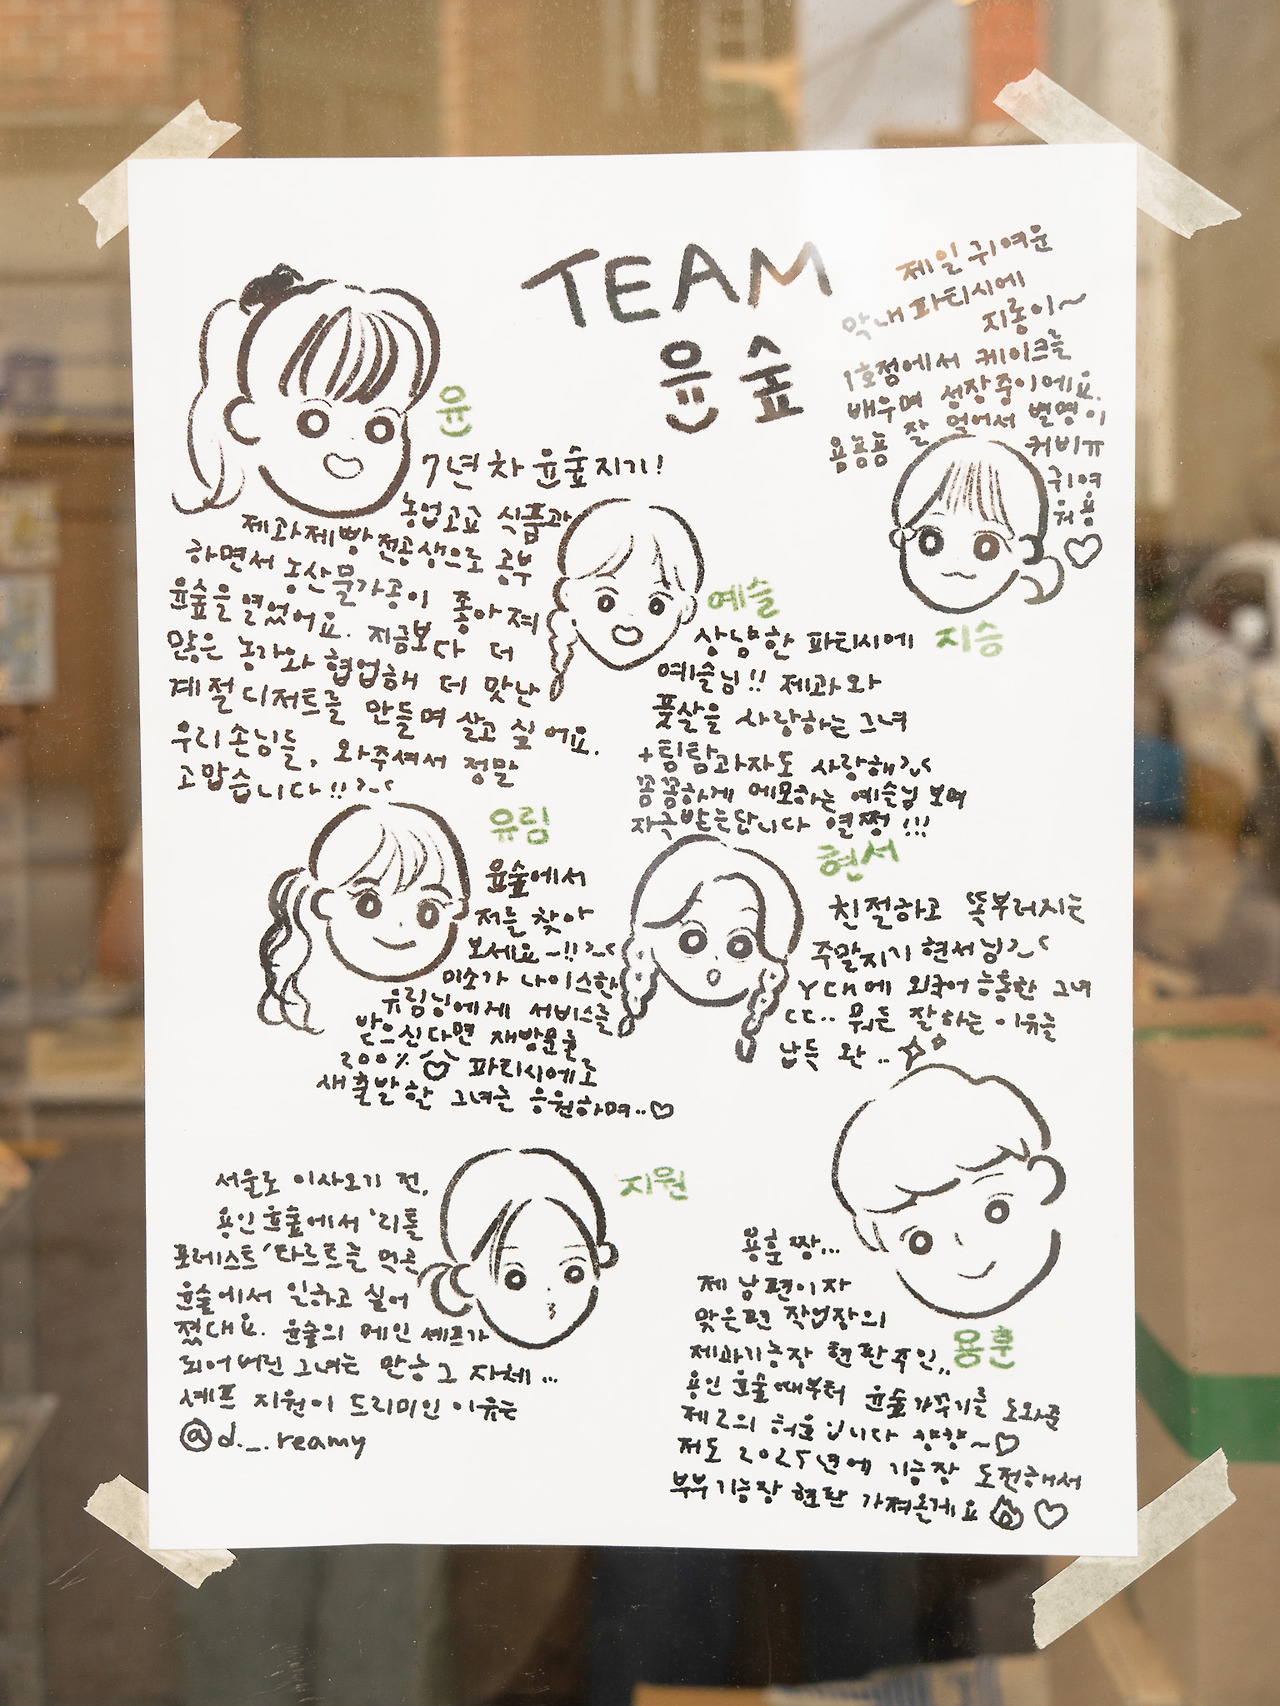 TEAM
윤숲
윤
7년차 윤숲지기!
농업고교 식품과
제과제빵 전공생으로 공부
하면서 농산물가공이 좋아져
윤숲을 열었어요. 지금보다 더
많은 농가와 협업해 더 맛난
계절디저트를 만들며 살고 싶어요.
우리 손님들, 와주셔서 정말
고맙습니다!!
제일 귀여운
막내 파티시에
지롱이~
1호점에서 케이크를
배우며 성장중이에요.
용뇽뇽 잘 먹어서 별명이
커비ㅠ
귀여
워용
♡
지승
예슬
상냥한 파티시에
예슬님!! 제과와
풋살을 사랑하는 그녀
+팀탐과자도 사랑해
꼼꼼하게 메모하는 예슬님 보며
자극받는답니다 열쩡!!!
유림
윤숲에서
저를 찾아
보세요~!!
미소가 나이스한
유림님에게 서비스를
받으신다면 재방문율
200% 파티시에로
새출발할 그녀를 응원하며..♡
현서
친절하고 똑부러지는
주말지기 현서님
YCH에 외국어 능통한 그녀
ㄷㄷ.. 뭐든 잘하는 이유를
납득 완..
지원
서울로 이사오기 전,
용인윤숲에서 '리틀
포레스트' 타르트를 먹곤
윤숲에서 일하고 싶어
졌대요. 윤숲의 메인 셰프가
되어버린 그녀는 만능 그 자체...
셰프 지원이 드리미인 이유는
@d._.reamy
용훈
용훈짱...
제 남편이자
맞은편 작업장의
제과기능장 현판주인..
용인 윤숲때부터 윤숲가꾸기를 도와준
제2의 허윤입니다 ~♡
저도 2025년에 기능장 도전해서
부부기능장 현판 가져올게요 ♡